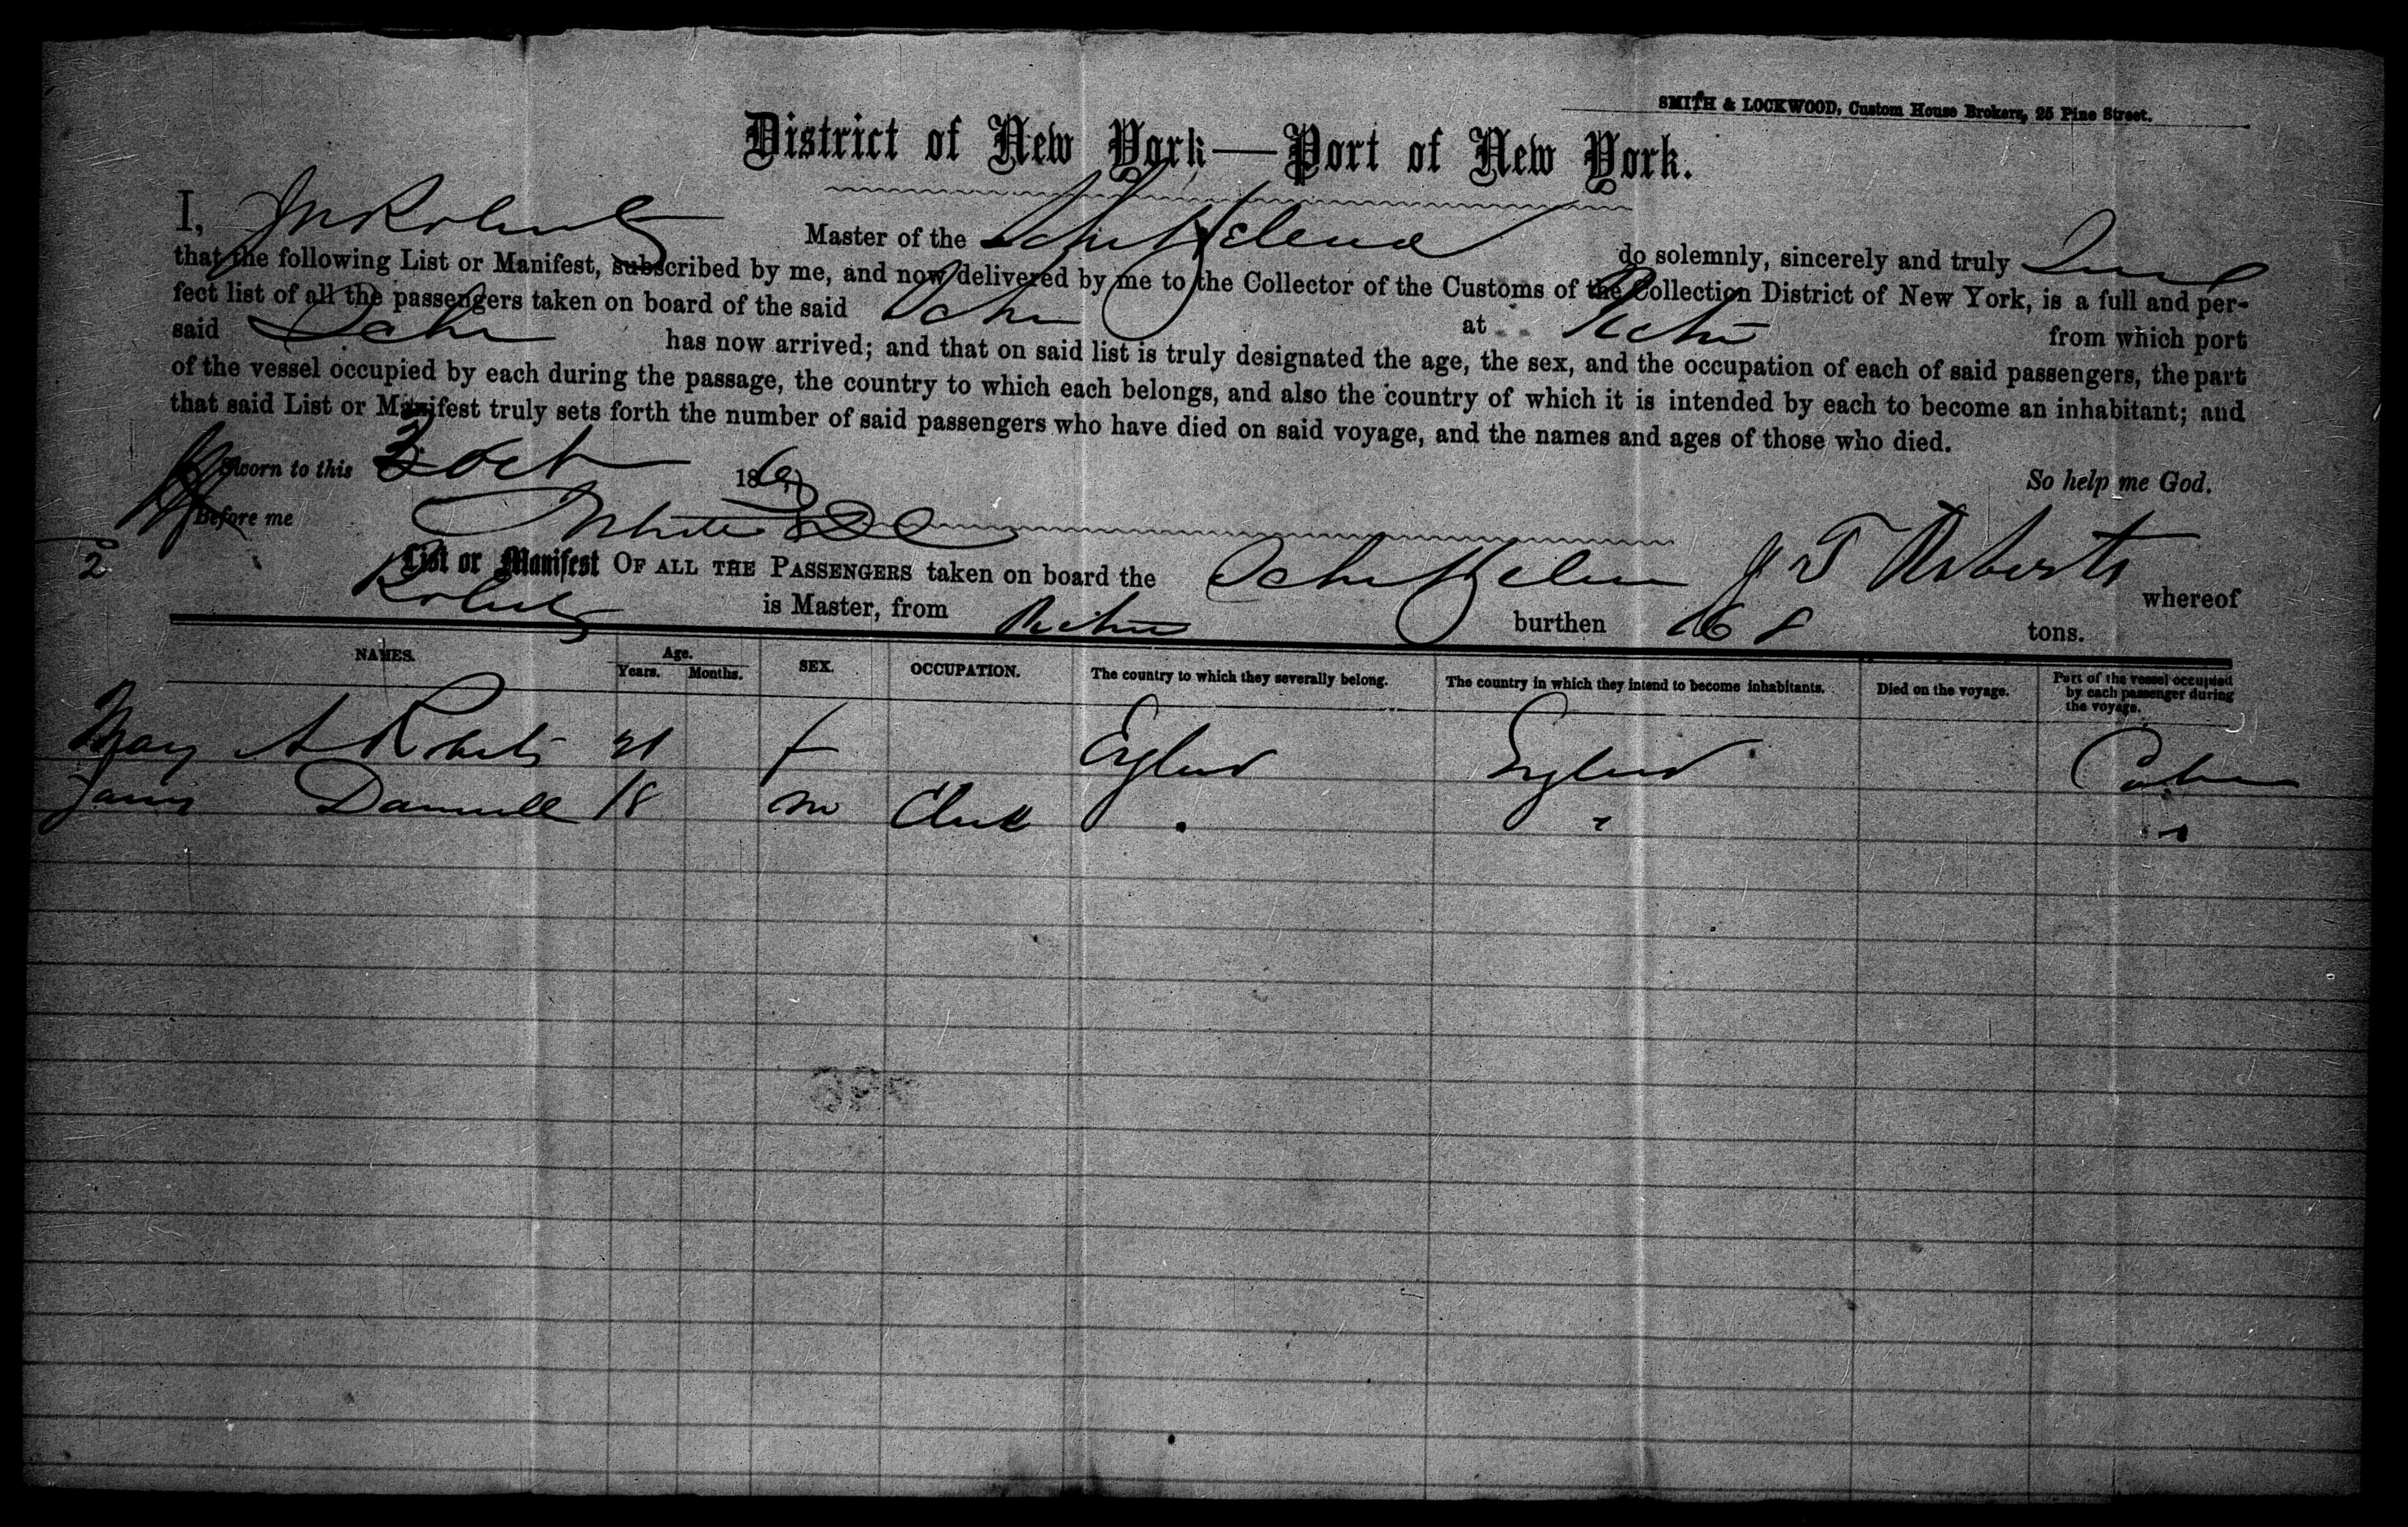 SMITH & LOCKWOOD, Custom House Brokers, 25 Pine Street.
District of New York—Port of New York.
I, Roberts Master of the Schr Helena do solemnly, sincerely and truly
that the following List or Manifest, subscribed by me, and now delivered by me to the Collector of the Customs of the Collection District of New York, is a full and per-
fect list of all the passengers taken on board of the said Schr at Pictou from which port
said Schr has now arrived; and that on said list is truly designated the age, the sex, and the occupation of each of said passengers, the part
of the vessel occupied by each during the passage, the country to which each belongs, and also the country of which it is intended by each to become an inhabitant; and
that said List or Manifest truly sets forth the number of said passengers who have died on said voyage, and the names and ages of those who died.
Sworn to this 3 Oct 186 So help me God.
Before me White DC J T Roberts
2
List or Manifest OF ALL THE PASSENGERS taken on board the Schr Helena whereof
Roberts is Master, from Pictou burthen 168 tons.
NAMES. Age. Years. Months. SEX. OCCUPATION. The country to which they severally belong. The country in which they intend to become inhabitants. Died on the voyage. Part of the vessel occupied by each passenger during the voyage.
Mary A Roberts 21 f England England Cabin
James 18 m Clerk " " "